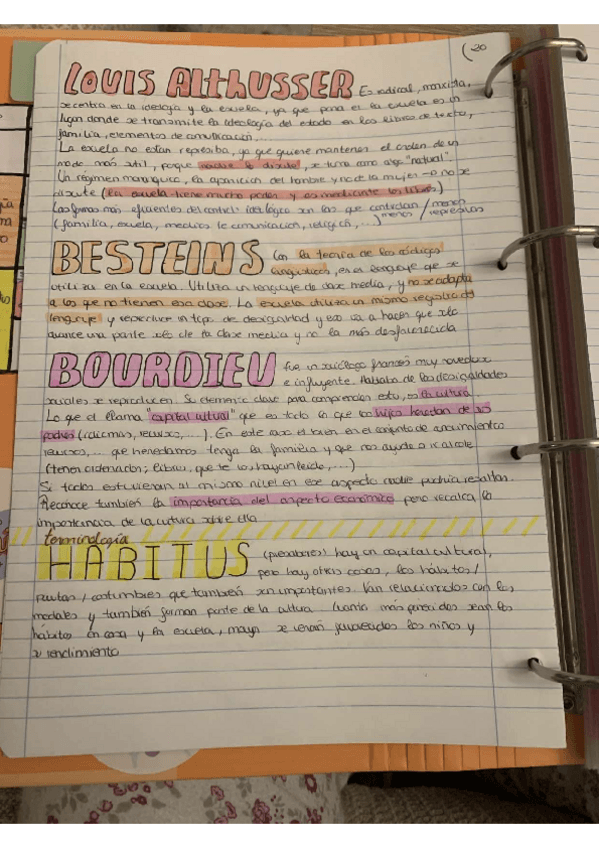 (20
LOUIS AlthUSSER Es radical, marxista,
se centra en la ideología y la escuela, ya que para él la escuela es un
lugar donde se transmite la ideología del estado en los libros de texto,
familia, elementos de comunicación,...
La escuela no es tan represiva, ya que quiere mantener el orden de un
modo más sutil, porque nadie lo discute, se toma como algo "natural".
Un régimen monárquico, la aparición del hombre y no de la mujer → no se
discute (la escuela tiene mucho poder y es mediante los libros)
Las formas más eficientes del control ideológico son las que controlan / menos
(familia, escuela, medios de comunicación, religión, ...) menos / represivas
BESTEINS Con la teoría de los códigos
lingüísticos, en el lenguaje que se
utiliza en la escuela. Utiliza un lenguaje de clase media, y no se adapta
a los que no tienen esa clase. La escuela utiliza un mismo registro de
lenguaje y reproduce un tipo de desigualdad y eso va a hacer que solo
avance una parte solo de la clase media y no la más desfavorecida
BOURDIEU fue un sociólogo francés muy novedoso
e influyente. Hablaba de las desigualdades
sociales se reproducen. Su elemento clave para comprender esto, es la cultura
Lo que él llama "capital cultural" que es todo lo que los hijos heredan de sus
padres (idiomas, recursos, ...). En este caso el bien en el conjunto de conocimientos
recursos, ... que heredamos tenga la familia y que nos ayude a ir al cole
(tener ordenador, libros, que te los hayan leído, ...)
Si todos estuvieran al mismo nivel en ese aspecto nadie podría resaltar.
Reconoce también la importancia del aspecto económico pero recalca la
importancia de la cultura sobre ella
terminología
HABITUS (presabores) hay un capital cultural,
pero hay otras cosas, los hábitos /
pautas / costumbres que también son importantes. Van relacionados con los
modales y también forman parte de la cultura. Cuanto más parecidos sean los
hábitos en casa y la escuela, mayor se verán favorecidos los niños y
su rendimiento